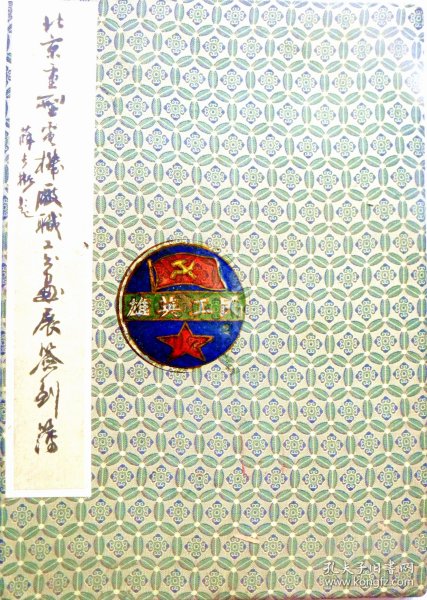 北京重型電機廠職工书画展签到簿
薛夫彬题
民工英雄
孔夫子旧书网
www.kongfz.com